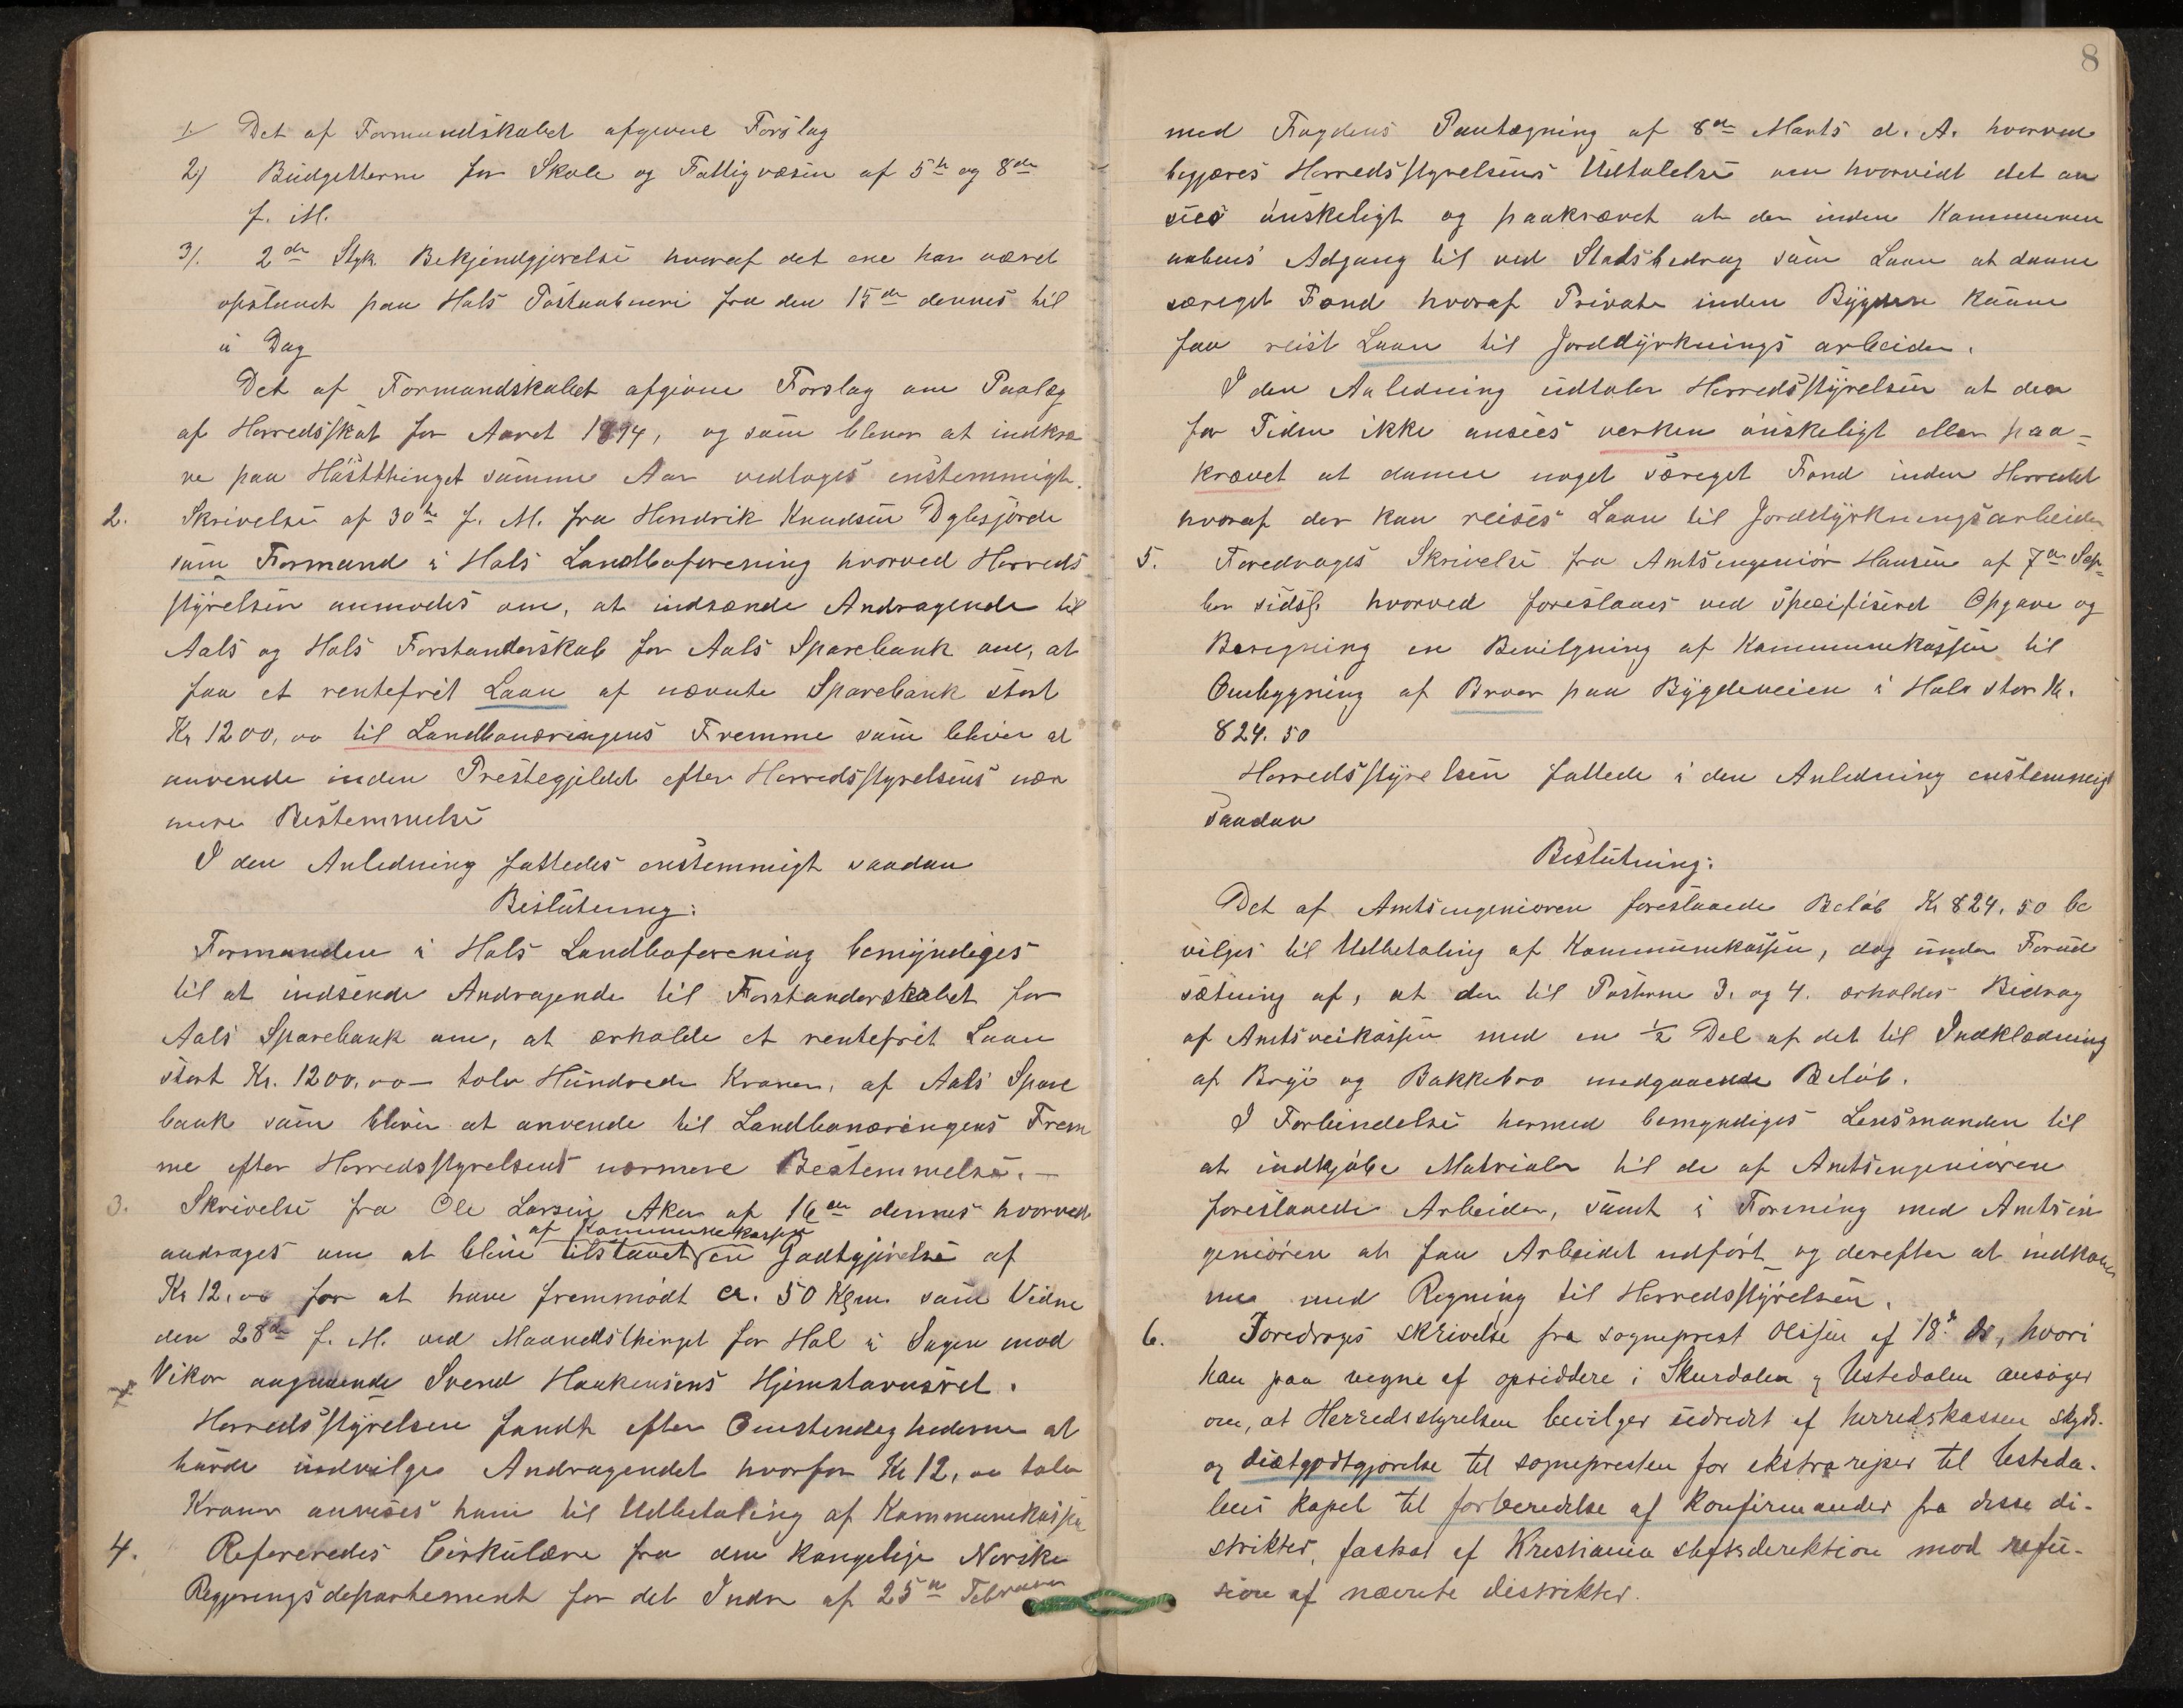 1. Det af Formandskabet afgivne Forslag
2) Budgetterne for Skole og Fattigvæsen af 5te og 8de
f. M.
3). 2de Styk. Bekjendgjørelse hvoraf det ene har været
opslaaet paa Hols Postaabneri fra den 15de dennes til
i Dag
Det af Formandskabet afgivne Forslag om Paalæg
af Herredsskat for Aaret 1894, og som bliver at indkræ
ve paa Høstthinget samme Aar vedtoges enstemmigt.
2. Skrivelse af 30te f. M. fra Hendrik Knudsen
som Formand i Hols Landboforening hvorved Herreds
styrelsen anmodes om, at indsende Andragende til
Aals og Hols Forstanderskab for Aals Sparebank om, at
faa et rentefrit Laan af nævnte Sparebank stort
Kr 1200,00 til Landbonæringens Fremme som bliver at
anvende inden Prestegjeldet efter Herredsstyrelsens nær
mere Bestemmelse
I den Anledning fattedes enstemmigt saadan
Beslutning:
Formanden i Hols Landboforening bemyndiges
til at indsende Andragende til Forstanderskabet for
Aals Sparebank om, at erholde et rentefrit Laan
stort Kr. 1200.00 – tolv Hundrede Kroner, af Aals Spare
bank som bliver at anvende til Landbonæringens Frem
me efter Herredsstyrelsens nærmere Bestemmelse. –
3. Skrivelse fra Ole Larsen Aker af 16de dennes hvorved
af Kommunekassen
andrages om at blive tilstaaet en Godtgjørelse af
Kr 12,00 for at have fremmødt ca. 50 Kgm. som Vidne
den 28de f. M. ved Maanedsthinget for Hol i Sagen mod
Vikør angaaende Svend Haakensens Hjemstavnsret.
Herredsstyrelsen fandt efter Omstendighederne at
burde indvilge Andragendet hvorfor Kr 12,00 tolv
Kroner anvises ham til Udbetaling af Kommunekassen
4. Refereredes Cirkulære fra den kongelige Norske
Regjeringsdepartement for det Indre af 25de Februar
8
med Fogdens Paategning af 8de Marts d. A. hvorved
begjæres Herredsstyrelsens Udtalelse om hvorvidt det an
sees ønskeligt og paakrævet at der inden Kommunen
aabnes Adgang til ved Stadsbedrag som Laan at danne
særeget Fond hvoraf Private inden Bygden kunne
faa reist Laan til Jorddyrknings arbeider.
I den Anledning udtaler Herredsstyrelsen at der
for Tiden ikke ansees verken ønskeligt eller paa-
krævet at danne noget særeget Fond inden Herredet
hvoraf der kan reises Laan til Jorddyrkningsarbeider
5. Foredrages Skrivelse fra Amtsingeniør Hansen af 7de Sep-
ber sidsl. hvorved foreslaaes ved specifiseret Opgave og
Beregning en Bevilgning af Kommunekassen til
Ombygning af Broer paa Bygdeveien i Hol stor Kr.
824.50
Herredsstyrelsen fattede i den Anledning enstemmigt
saadan
Beslutning:
Det af Amtsingeniøren foreslaaede Beløb Kr 824.50 be
vilges til Udbetaling af Kommunekassen, dog under Forud
sætning af, at der til Posterne 3. og 4. erholdes Bidrag
af Amtsveikassen med en 1/2 Del af det til Indklædning
af Brye og Bakkebro medgaaende Beløb.
I Forbindelse hermed bemyndiges Lensmanden til
at indkjøbe Materialer til de af Amtsingeniøren
foreslaaede Arbeider, samt i Forening med Amtsin
geniøren at faa Arbeidet udført og derefter at indkom
me med Regning til Herredsstyrelsen.
6. Foredroges skrivelse fra sogneprest Olssen af 18de ds, hvori
han paa vegne af opsiddere i Skurdalen og Ustedalen ansøger
om, at Herredsstyrelsen bevilger udredet af herredskassen skyds-
og diætgodtgjørelse til sognepresten for ekstra rejser til Usteda-
lens kapel til forberedelse af konfirmander fra disse di-
strikter, af Kristiania stiftsdirektion mod refu-
sion af nævnte distrikter.